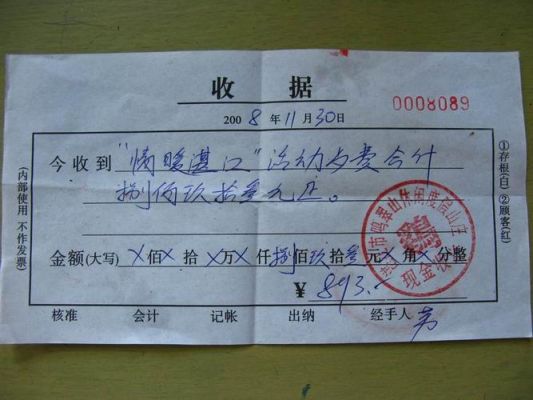 收据
0008089
2008年11月30日
今收到"情暖湛江"活动与费合计
捌佰玖拾叁元正。
金额(大写)X佰X拾X万X仟捌佰玖拾叁元X角X分整
¥893.-
核准 会计 记帐 出纳 经手人
(内部使用 不作发票)
①存根(白)②顾客(红)
鸣翠山休闲度层山庄
现金收